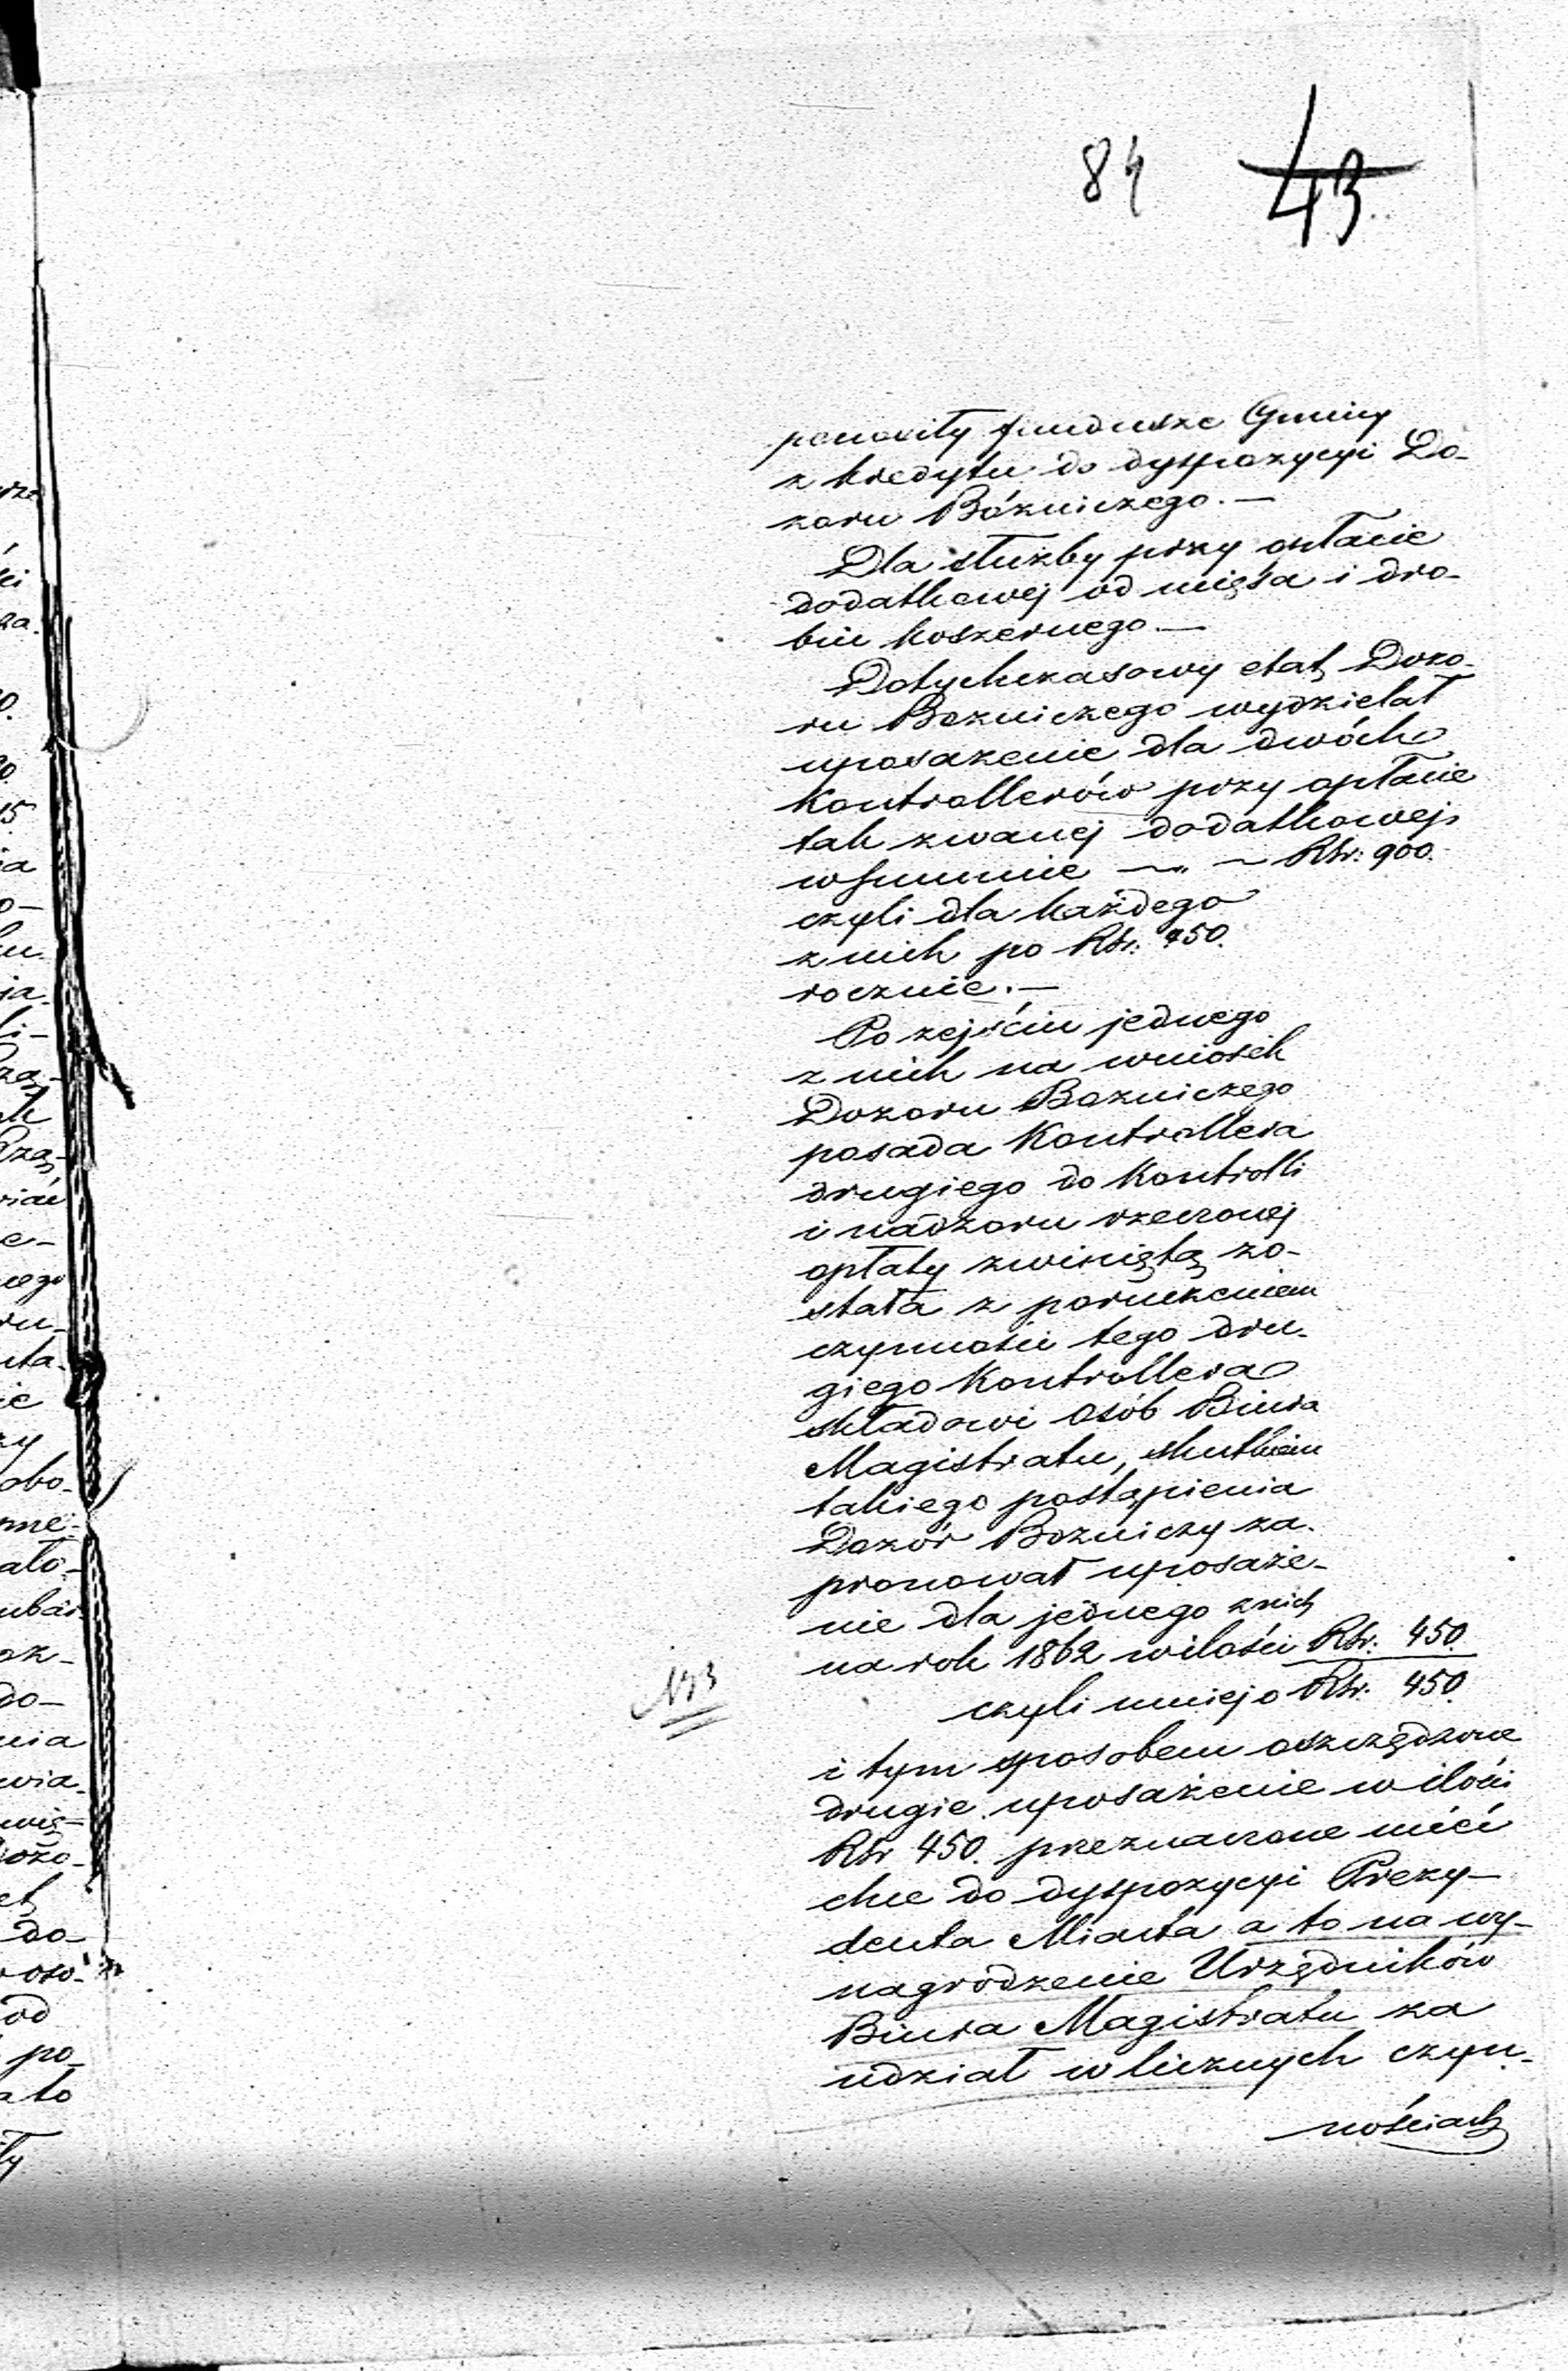 84 43
ponosiły fundusze Gminy
z kredytu do dyspozycyi Do-
zoru Bóżniczego. —
Dla służby przy opłacie
dodatkowej od mięsa i dro-
biu koszernego —
Dotychczasowy etat Dozo-
ru Bożniczego wydzielał
uposażenie dla dwóch
Kontrollerów przy opłacie
tak zwanej dodatkowej
w summie — „ — Rsr: 900.
czyli dla każdego
z nich po Rsr: 450.
rocznie. —
Po zejściu jednego
z nich na wniosek
Dozoru Bożniczego
posada Kontrollera
drugiego do Kontrolli
i nadzoru rzeczonej
opłaty zwiniętą zo-
stała z poruczeniem
czynności tego dru-
giego Kontrollera
składowi osób Biura
Magistratu, skutkiem
takiego postąpienia
Dozór Bożniczy za-
pronował uposaże-
nie dla jednego z nich
na rok 1862 w ilości Rsr. 450.
czyli mniej o Rsr. 450.
No 3
i tym sposobem oszczędzone
drugie uposażenie w ilości
Rsr 450. przeznaczone mieć
chce do dyspozycyi Prezy-
denta Miasta a to na wy-
nagrodzenie Urzędników
Biura Magistratu za
udział w licznych czyn-
nościach